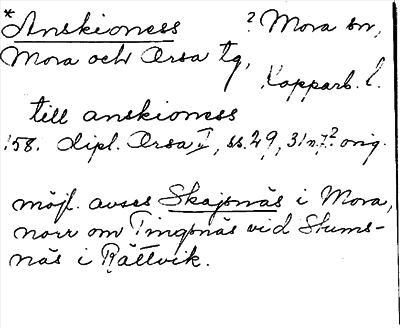 *Anskioness ? Mora sn,
Mora och Orsa tg,
Kopparb. l.
till anskioness
158. dipl. Orsa I, ss. 29, 31 n. 7 ? orig.
möjl. avses Skajsnäs i Mora,
norr om Tingsnäs vid Stums-
näs i Rättvik.